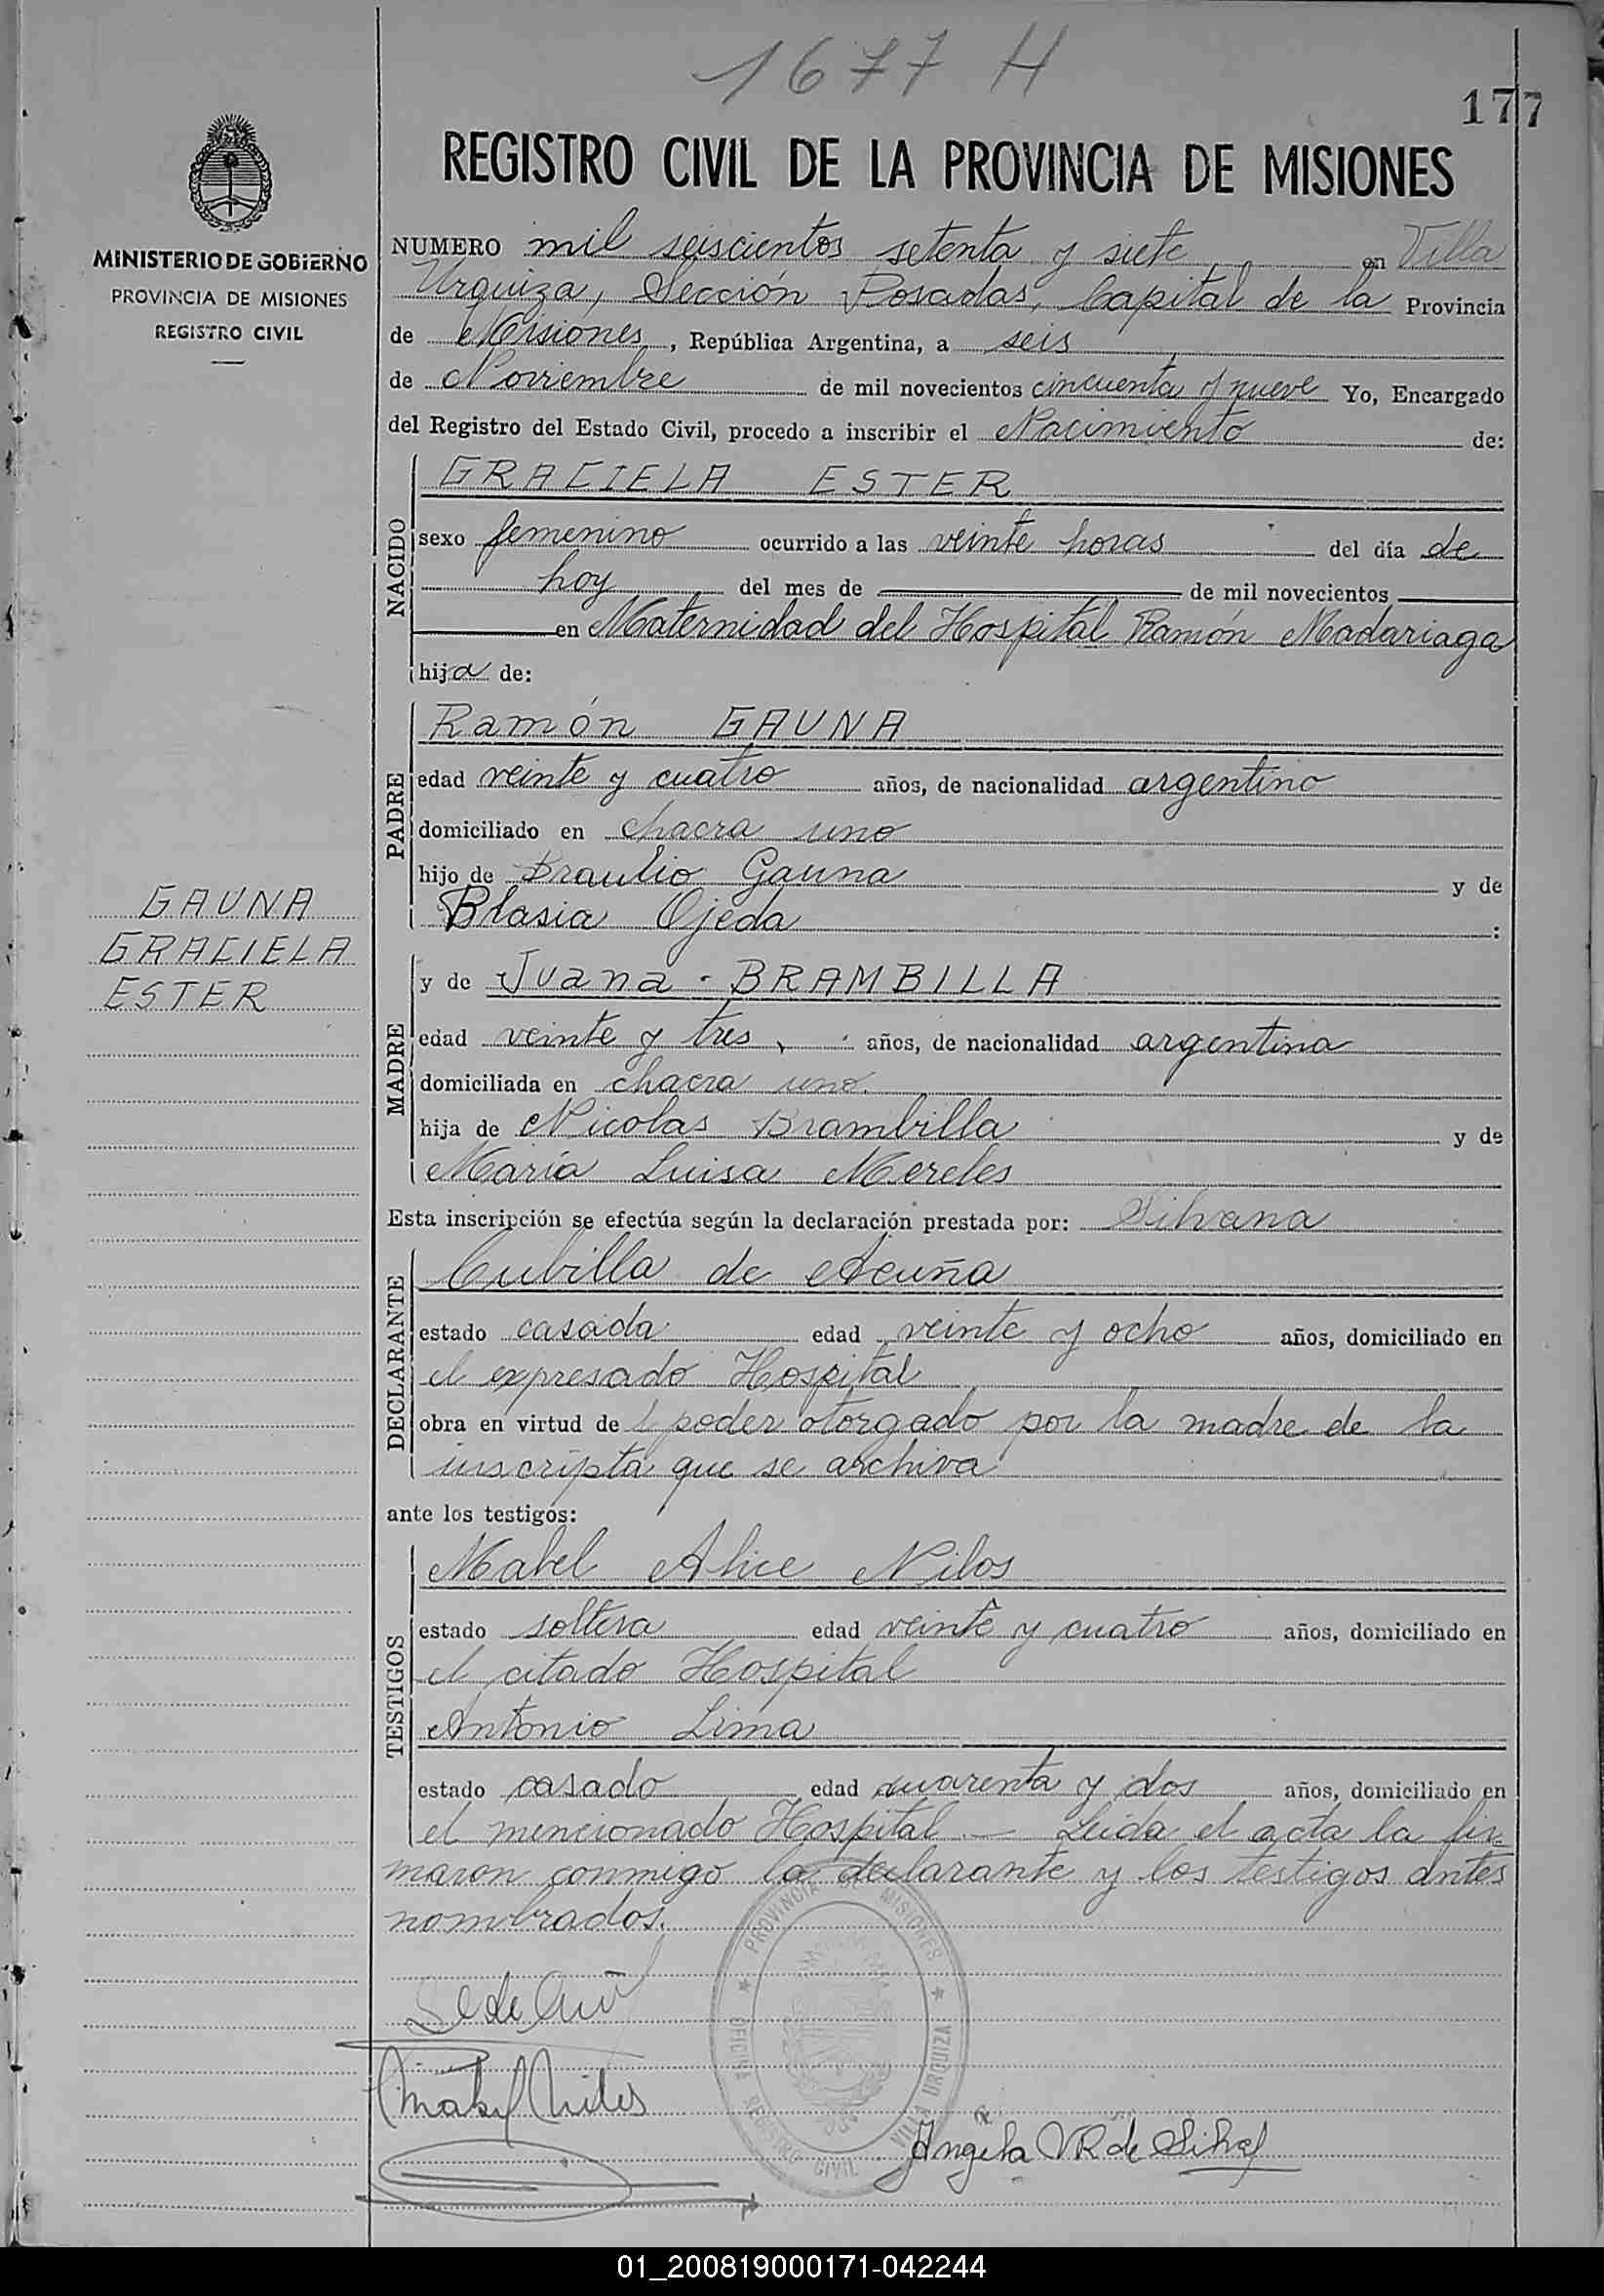 1677 H
177
REGISTRO CIVIL DE LA PROVINCIA DE MISIONES
MINISTERIO DE GOBIERNO
PROVINCIA DE MISIONES
REGISTRO CIVIL
NUMERO mil seiscientos setenta y siete en Villa
Urquiza, Sección Posadas, Capital de la Provincia
de Misiones, República Argentina, a seis
de Noviembre de mil novecientos cincuenta y nueve Yo, Encargado
del Registro del Estado Civil, procedo a inscribir el Nacimiento de:
NACIDO
GRACIELA ESTER
sexo femenino ocurrido a las veinte horas del día de
hoy del mes de de mil novecientos
en Maternidad del Hospital Ramón Madariaga
hija de:
PADRE
Ramón GAUNA
edad veinte y cuatro años, de nacionalidad argentino
domiciliado en chacra uno
hijo de Braulio Gauna y de
Blasia Ojeda :
GAUNA
GRACIELA
ESTER
MADRE
y de Juana - BRAMBILLA
edad veinte y tres años, de nacionalidad argentina
domiciliada en chacra uno.
hija de Nicolas Brambilla y de
María Luisa Mereles
Esta inscripción se efectúa según la declaración prestada por: Silvana
DECLARANTE
Cubilla de Acuña
estado casada edad veinte y ocho años, domiciliado en
el expresado Hospital
obra en virtud del poder otorgado por la madre de la
inscripta que se archiva
ante los testigos:
TESTIGOS
Mabel Alice Nilos
estado soltera edad veinte y cuatro años, domiciliado en
el citado Hospital
Antonio Lima
estado casado edad cuarenta y dos años, domiciliado en
el mencionado Hospital. — Leida el acta la fir-
maron conmigo la declarante y los testigos antes
nombrados.
PROVINCIA MISIONES
OFICINA REGISTRO CIVIL VILLA URQUIZA
Angela VR de
01_200819000171-042244